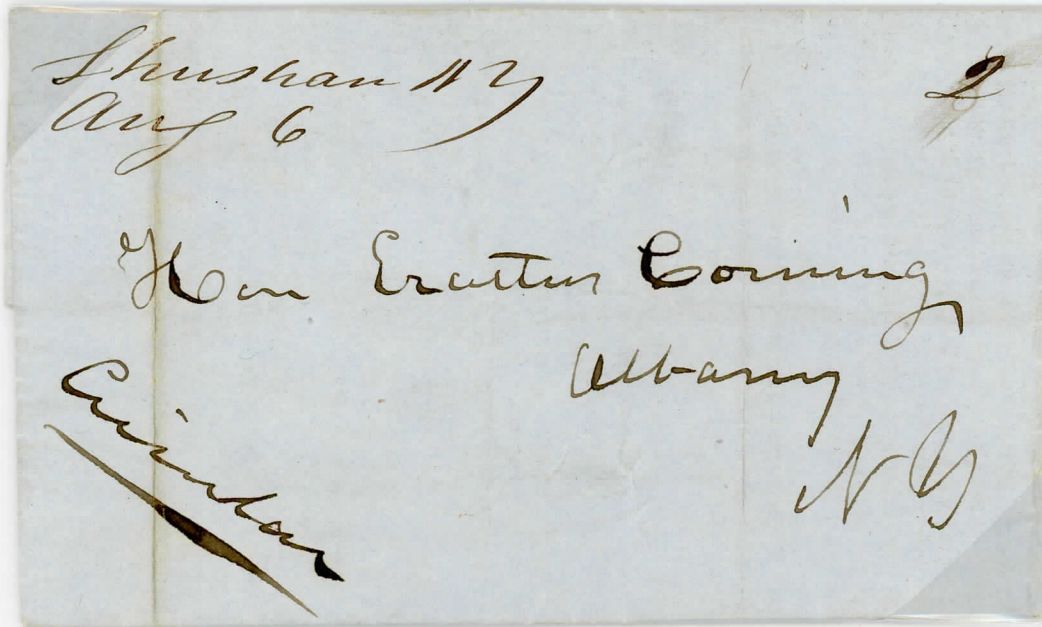 Shushan NY
Aug 6
2
Hon Erastus Corning
Albany
NY
Circular